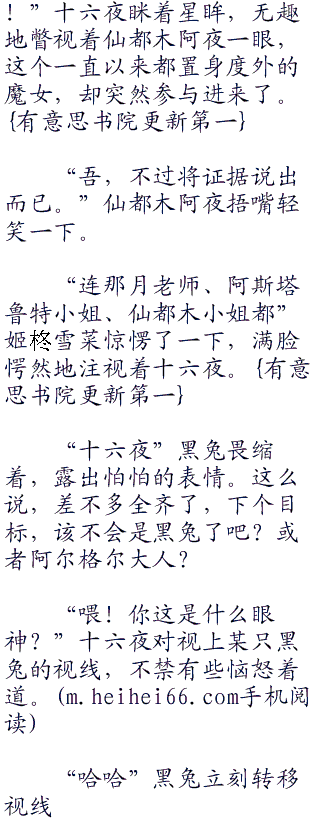 ！”十六夜眯着星眸，无趣
地瞥视着仙都木阿夜一眼，
这个一直以来都置身度外的
魔女，却突然参与进来了。
{有意思书院更新第一}
“吾，不过将证据说出
而已。”仙都木阿夜捂嘴轻
笑一下。
“连那月老师、阿斯塔
鲁特小姐、仙都木小姐都”
姬柊雪菜惊愣了一下，满脸
愕然地注视着十六夜。{有意
思书院更新第一}
“十六夜”黑兔畏缩
着，露出怕怕的表情。这么
说，差不多全齐了，下个目
标，该不会是黑兔了吧？或
者阿尔格尔大人？
“喂！你这是什么眼
神？”十六夜对视上某只黑
兔的视线，不禁有些恼怒着
道。(m.heihei66.com手机阅
读)
“哈哈”黑兔立刻转移
视线